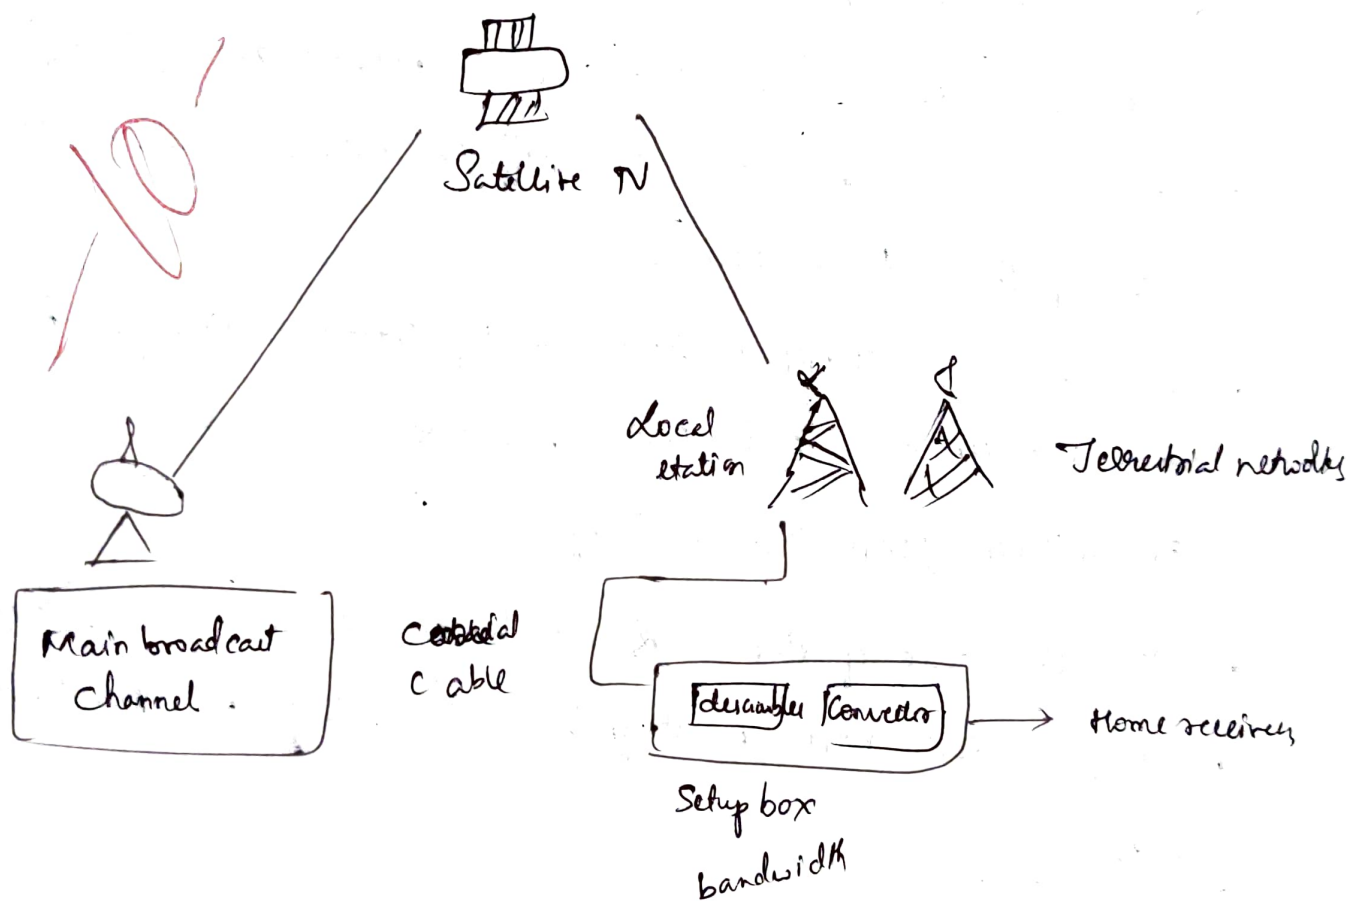 Satellite N
Local
station
Terrestrial networks
Main broadcast
channel .
Coaxial
Cable
descrambler
Convertor
Home receivers
Setup box
bandwidth